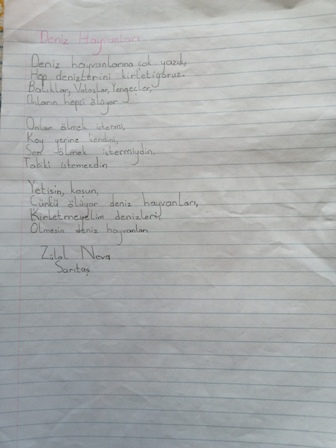 Deniz Hayvanları
Deniz hayvanlarına çok yazık,
Hep denizlerini kirletiyoruz.
Balıklar, Vatozlar, Yengeçler,
Onların hepsi ölüyor
Onlar ölmek istermi,
Koy yerine kendini,
Sen ölmek istermiydin,
Tabiki istemezdin
Yetişin, koşun,
Çünkü ölüyor deniz hayvanları,
Kirletmeyelim denizleri,
Ölmesin deniz hayvanları
Zülal Neva
Sarıtaş